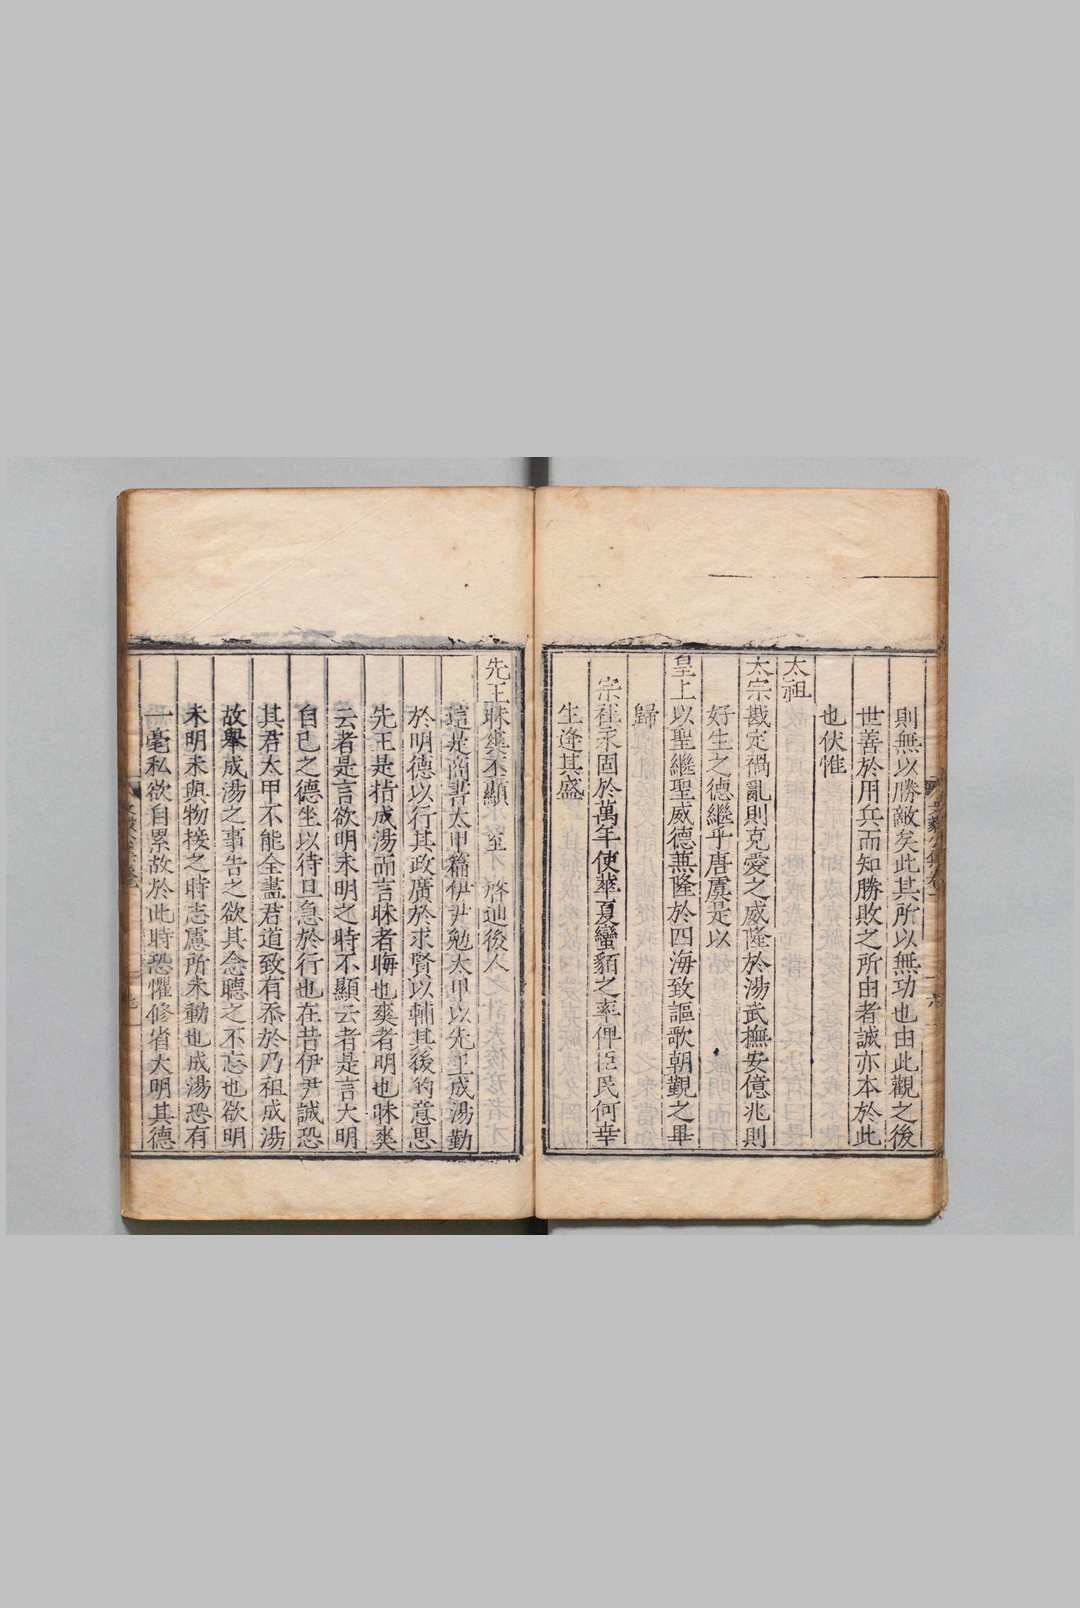 則無以勝敵矣此其所以無功也由此觀之後
世善於用兵而知勝敗之所由者誠亦本於此
也伏惟
太祖
太宗戡定禍亂則克愛之威隆於湯武撫安億兆則
好生之德繼乎唐虞是以
皇上以聖繼聖威德兼隆於四海致謳歌朝覲之畢
歸
宗社永固於萬年使華夏蠻貊之率俾臣民何幸
生逢其盛
先王昧爽丕顯 至 啓迪後人
這是商書太甲篇伊尹勉太甲以先王成湯勤
於明德以行其政廣於求賢以輔其後的意思
先王是指成湯而言昧者晦也爽者明也昧爽
云者是言欲明未明之時丕顯云者是言大明
自己之德坐以待旦急於行也在昔伊尹誠恐
其君太甲不能全盡君道致有忝於乃祖成湯
故舉成湯之事告之欲其念聽之不忘也欲明
未明未與物接之時志慮所未動也成湯恐有
一毫私欲自累故於此時恐懼修省大明其德